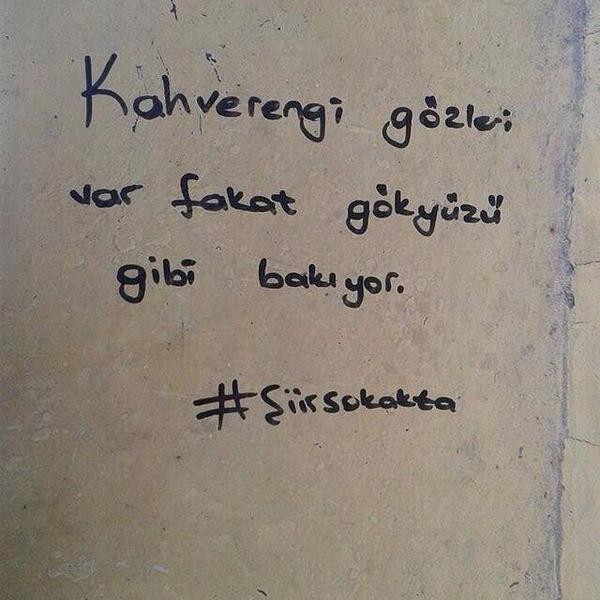 Kahverengi gözleri
var fakat gökyüzü
gibi bakıyor.
#Şiirsokakta